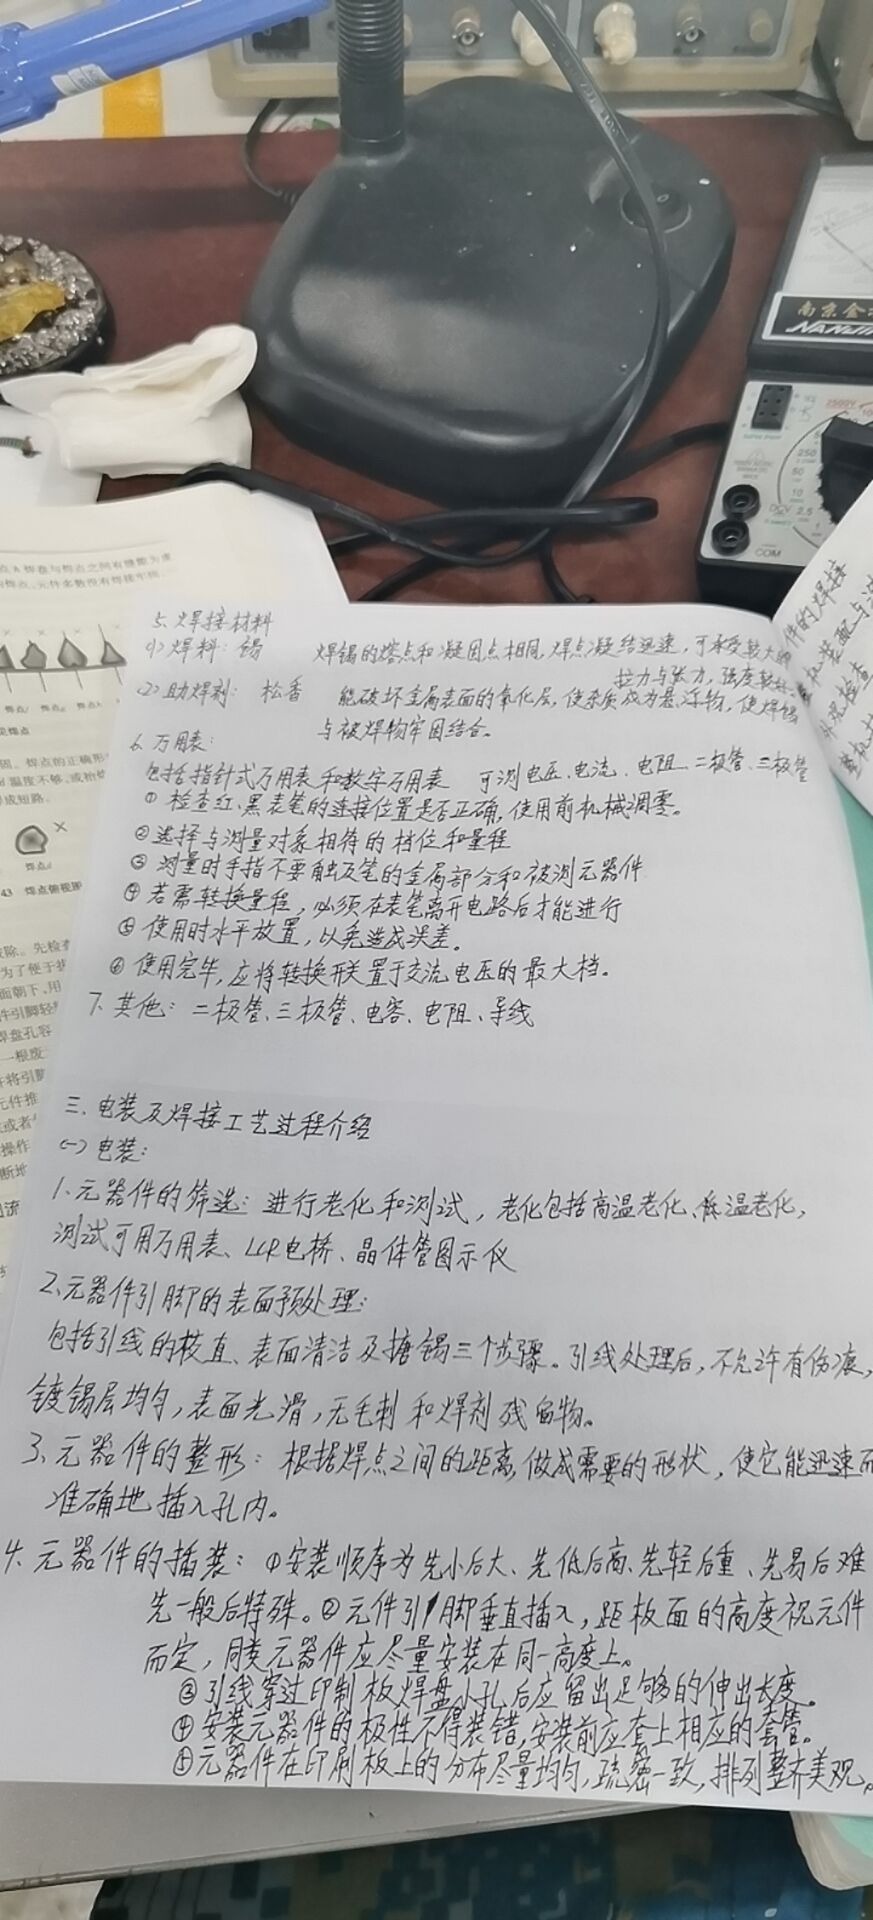 南京金
NANJIN
2500V
250
50
10
2.5
DCV
COM
点A焊卷与焊点之间有缝隙为虚
的焊点、元件多数没有焊接牢固
焊点d
43 焊点俯视图
5. 焊接材料
(1) 焊料: 锡 焊锡的熔点和凝固点相同,焊点凝结迅速,可承受较大的
拉力与张力,强度较好。
(2) 助焊剂: 松香 能破坏金属表面的氧化层,使杂质成为悬浮物,使焊锡
与被焊物牢固结合。
6. 万用表:
包括指针式万用表和数字万用表 可测电压、电流、电阻、二极管、三极管
① 检查红、黑表笔的连接位置是否正确,使用前机械调零。
② 选择与测量对象相符的档位和量程
③ 测量时手指不要触及笔的金属部分和被测元器件
④ 若需转换量程,必须在表笔离开电路后才能进行
⑤ 使用时水平放置,以免造成误差。
⑥ 使用完毕,应将转换开关置于交流电压的最大档。
7. 其他: 二极管、三极管、电容、电阻、导线
三、电装及焊接工艺过程介绍
(一) 电装:
1. 元器件的筛选: 进行老化和测试,老化包括高温老化、低温老化,
测试可用万用表、LCR电桥、晶体管图示仪
2. 元器件引脚的表面预处理:
包括引线的校直、表面清洁及搪锡三个步骤。引线处理后,不允许有伤痕,
镀锡层均匀,表面光滑,无毛刺和焊剂残留物。
3. 元器件的整形: 根据焊点之间的距离,做成需要的形状,使它能迅速而
准确地插入孔内。
4. 元器件的插装: ①安装顺序为先小后大、先低后高、先轻后重、先易后难
先一般后特殊。②元件引脚垂直插入,距板面的高度视元件
而定,同类元器件应尽量安装在同一高度上。
③引线穿过印制板焊盘小孔后应留出足够的伸出长度。
④安装元器件的极性不得装错,安装前应套上相应的套管。
⑤元器件在印刷板上的分布尽量均匀,疏密一致,排列整齐美观。
件的焊接
机装配与
外观检查
整机